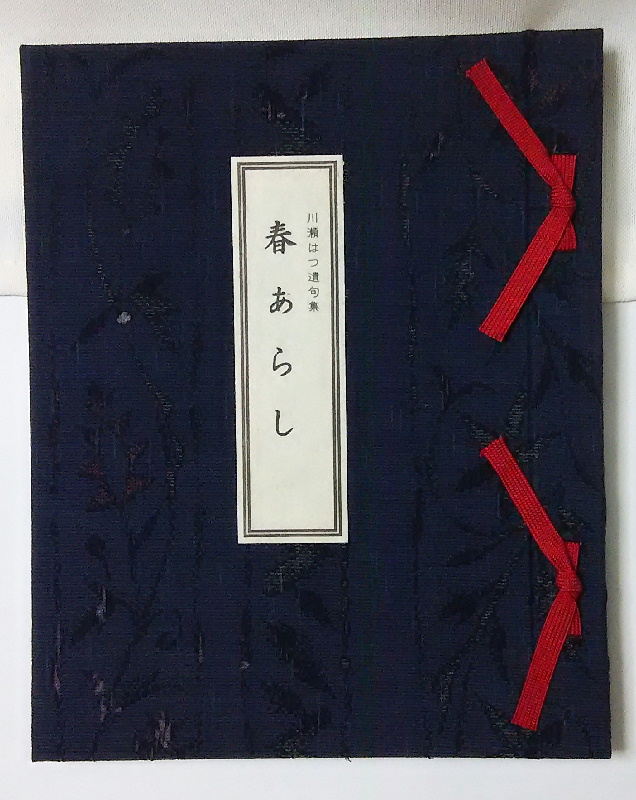 川瀬はつ遺句集
春あらし